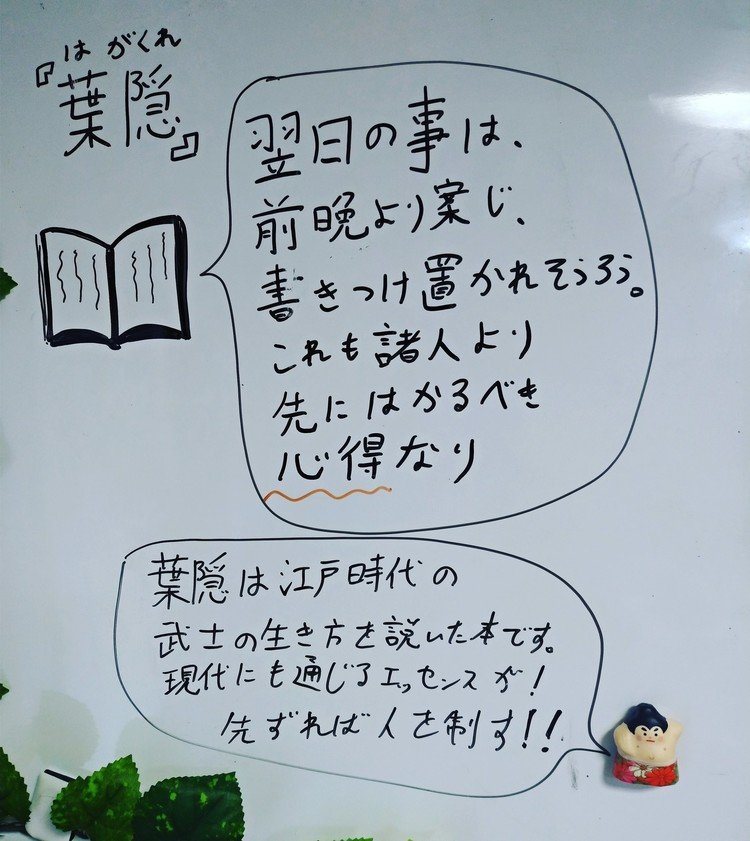 はがくれ
『葉隠』
翌日の事は、
前晩より案じ、
書きつけ置かれそうろう。
これも諸人より
先にはかるべき
心得なり
葉隠は江戸時代の
武士の生き方を説いた本です。
現代にも通じるエッセンスが!
先ずれば人を制す!!